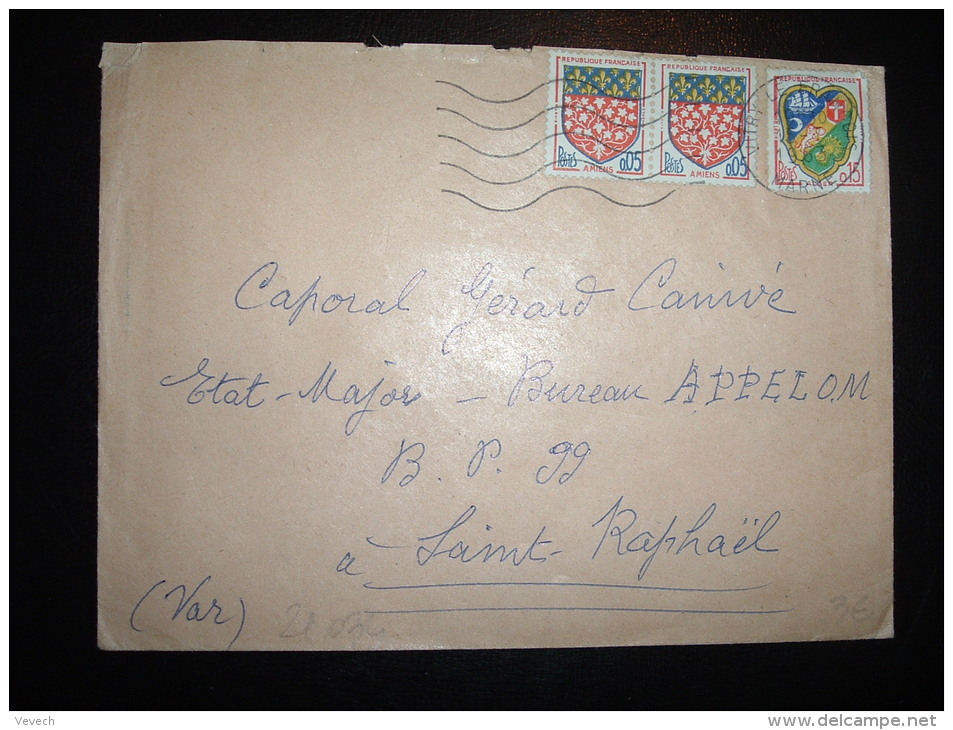 REPUBLIQUE FRANÇAISE
POSTES 0.05
AMIENS
REPUBLIQUE FRANÇAISE
POSTES 0.05
AMIENS
REPUBLIQUE FRANÇAISE
POSTES 0.15
MARNE
Caporal Gérard Canivé
Etat-Major - Bureau APPELOM
B. P. 99
à Saint-Raphaël
(Var)
3€
Vevech
www.delcampe.net